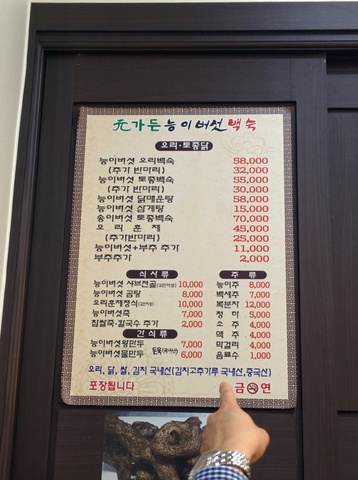 元가든능이버섯백숙
오리·토종닭
능이버섯 오리백숙 58,000
(추가 반마리) 32,000
능이버섯 토종백숙 55,000
(추가 반마리) 30,000
능이버섯 닭매운탕 58,000
능이버섯 삼계탕 15,000
송이버섯 토종백숙 70,000
오리훈제 45,000
(추가반마리) 25,000
능이버섯+부추 추가 11,000
부추추가 2,000
식사류
능이버섯 샤브전골 10,000
능이버섯 곰탕 8,000
오리훈제정식 10,000
능이버섯죽 7,000
찹쌀죽·칼국수 추가 2,000
간식류
능이버섯왕만두 7,000
능이버섯물만두 6,000
주류
능이주 8,000
백세주 7,000
복분자 12,000
청하 5,000
소주 4,000
맥주 4,000
막걸리 4,000
음료수 1,000
오리, 닭, 쌀, 김치 국내산(김치고추가루 국내산,중국산)
포장됩니다
금연